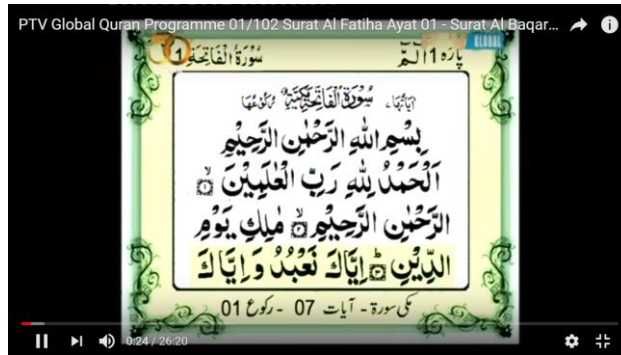 PTV Global Quran Programme 01/102 Surat Al Fatiha Ayat 01 - Surat Al Baqar...
GLOBAL
سُوْرَةُ الْفَاتِحَةِ 1
پارہ 1 الٓمّٓ
سُوْرَةُ الْفَاتِحَةِ مَكِّيَّةٌ
بِسْمِ اللّٰهِ الرَّحْمٰنِ الرَّحِيْمِ
اَلْحَمْدُ لِلّٰهِ رَبِّ الْعٰلَمِيْنَ ۙ﴿۱﴾
الرَّحْمٰنِ الرَّحِيْمِ ۙ﴿۲﴾ مٰلِكِ يَوْمِ
الدِّيْنِ ؕ﴿۳﴾ اِيَّاكَ نَعْبُدُ وَاِيَّاكَ
مکی سورۃ - آیات 07 - رکوع 01
0:24 / 26:20